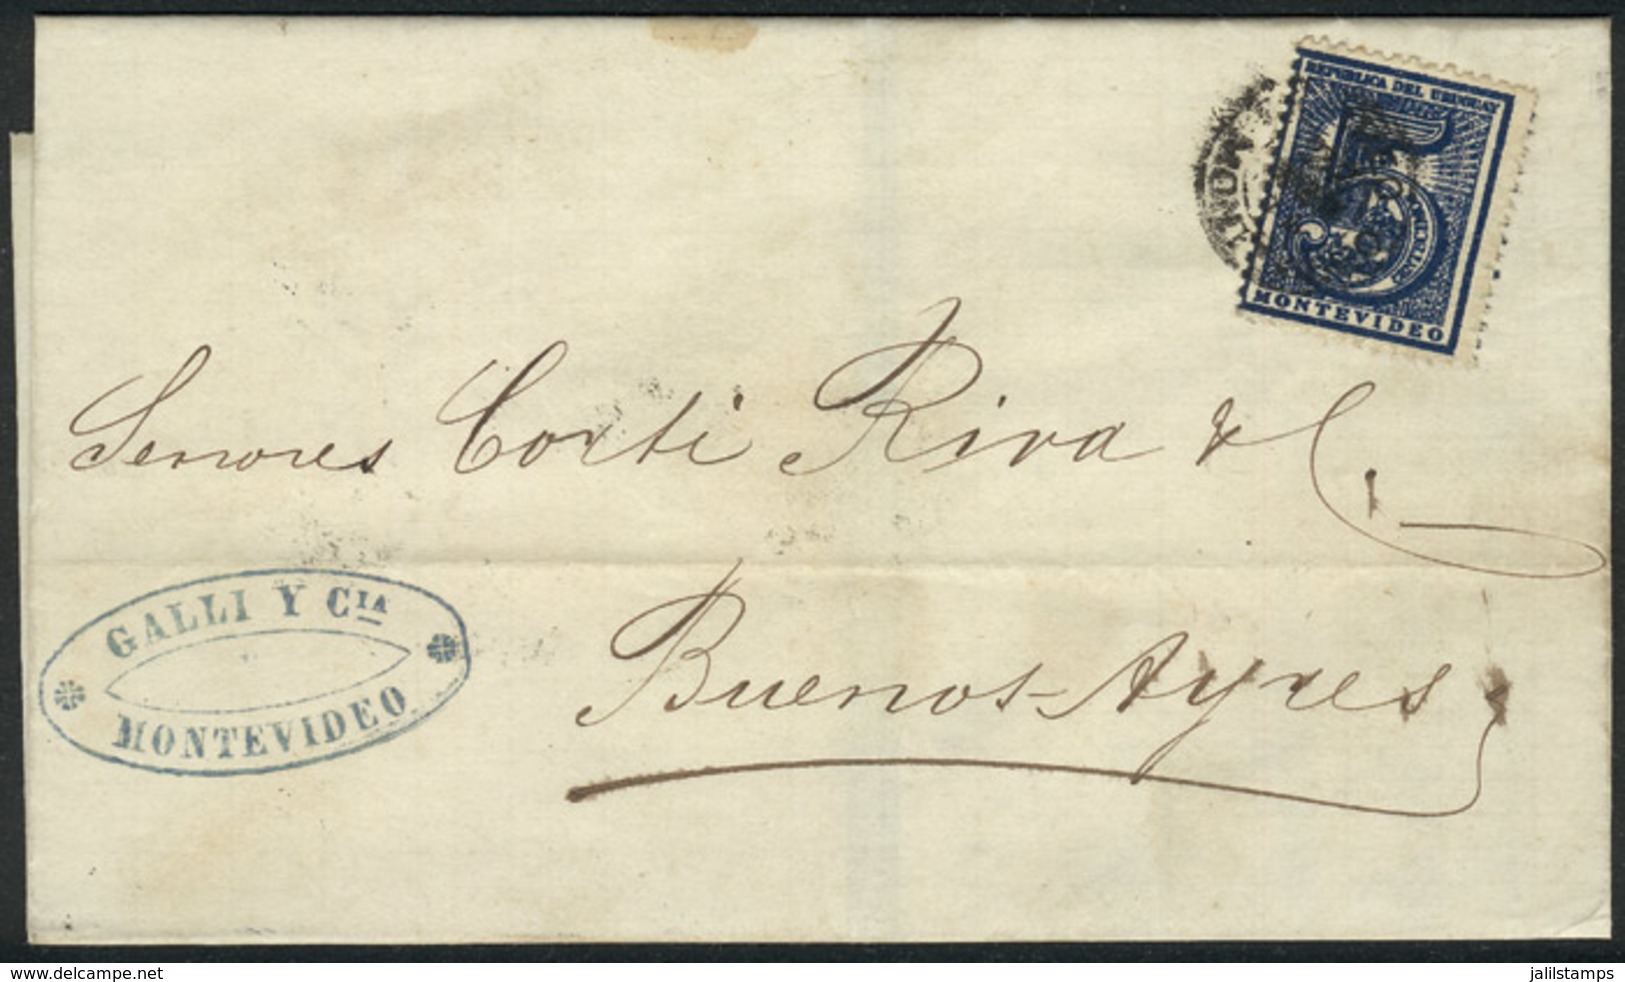 REPUBLICA DEL URUGUAY
5
CENTECIMOS
MONTEVIDEO
Senores Corti Riva & C.
GALLI Y CIA
MONTEVIDEO
Buenos-Ayres
www.delcampe.net
jalilstamps